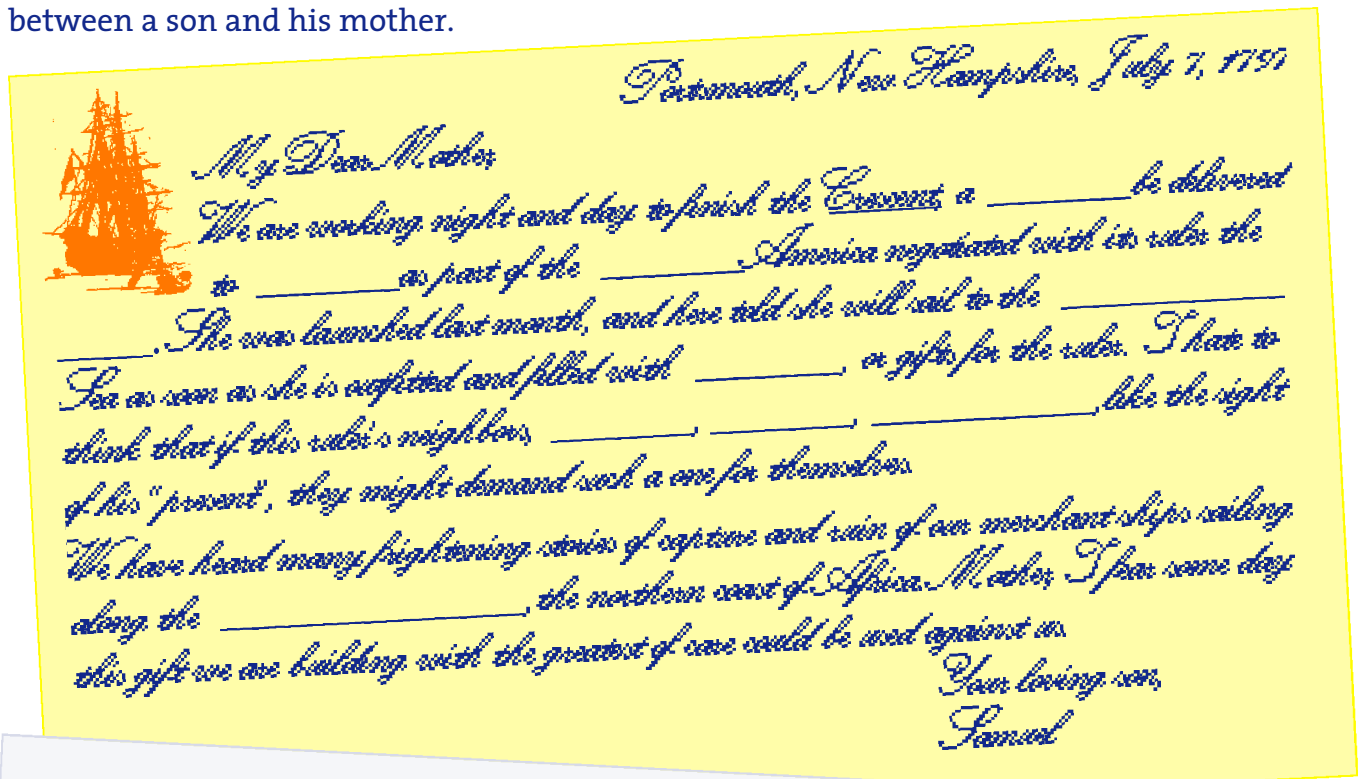 between a son and his mother.
Portsmouth, New Hampshire, July 7, 1797
My Dear Mother,
We are working night and day to finish the Crescent, a ________ be delivered
to ________ as part of the ________ America negotiated with its ruler the
________. She was launched last month, and here told she will sail to the ________
Sea as soon as she is outfitted and filled with ________, or gifts for the ruler. I hate to
think that if this ruler's neighbors, ________, ________, ________, like the sight
of his "present", they might demand such a one for themselves.
We have heard many frightening stories of capture and ruin of our merchant ships sailing
along the ________, the northern coast of Africa. Mother, I fear some day
this gift we are building with the greatest of care could be used against us.
Your loving son,
Samuel